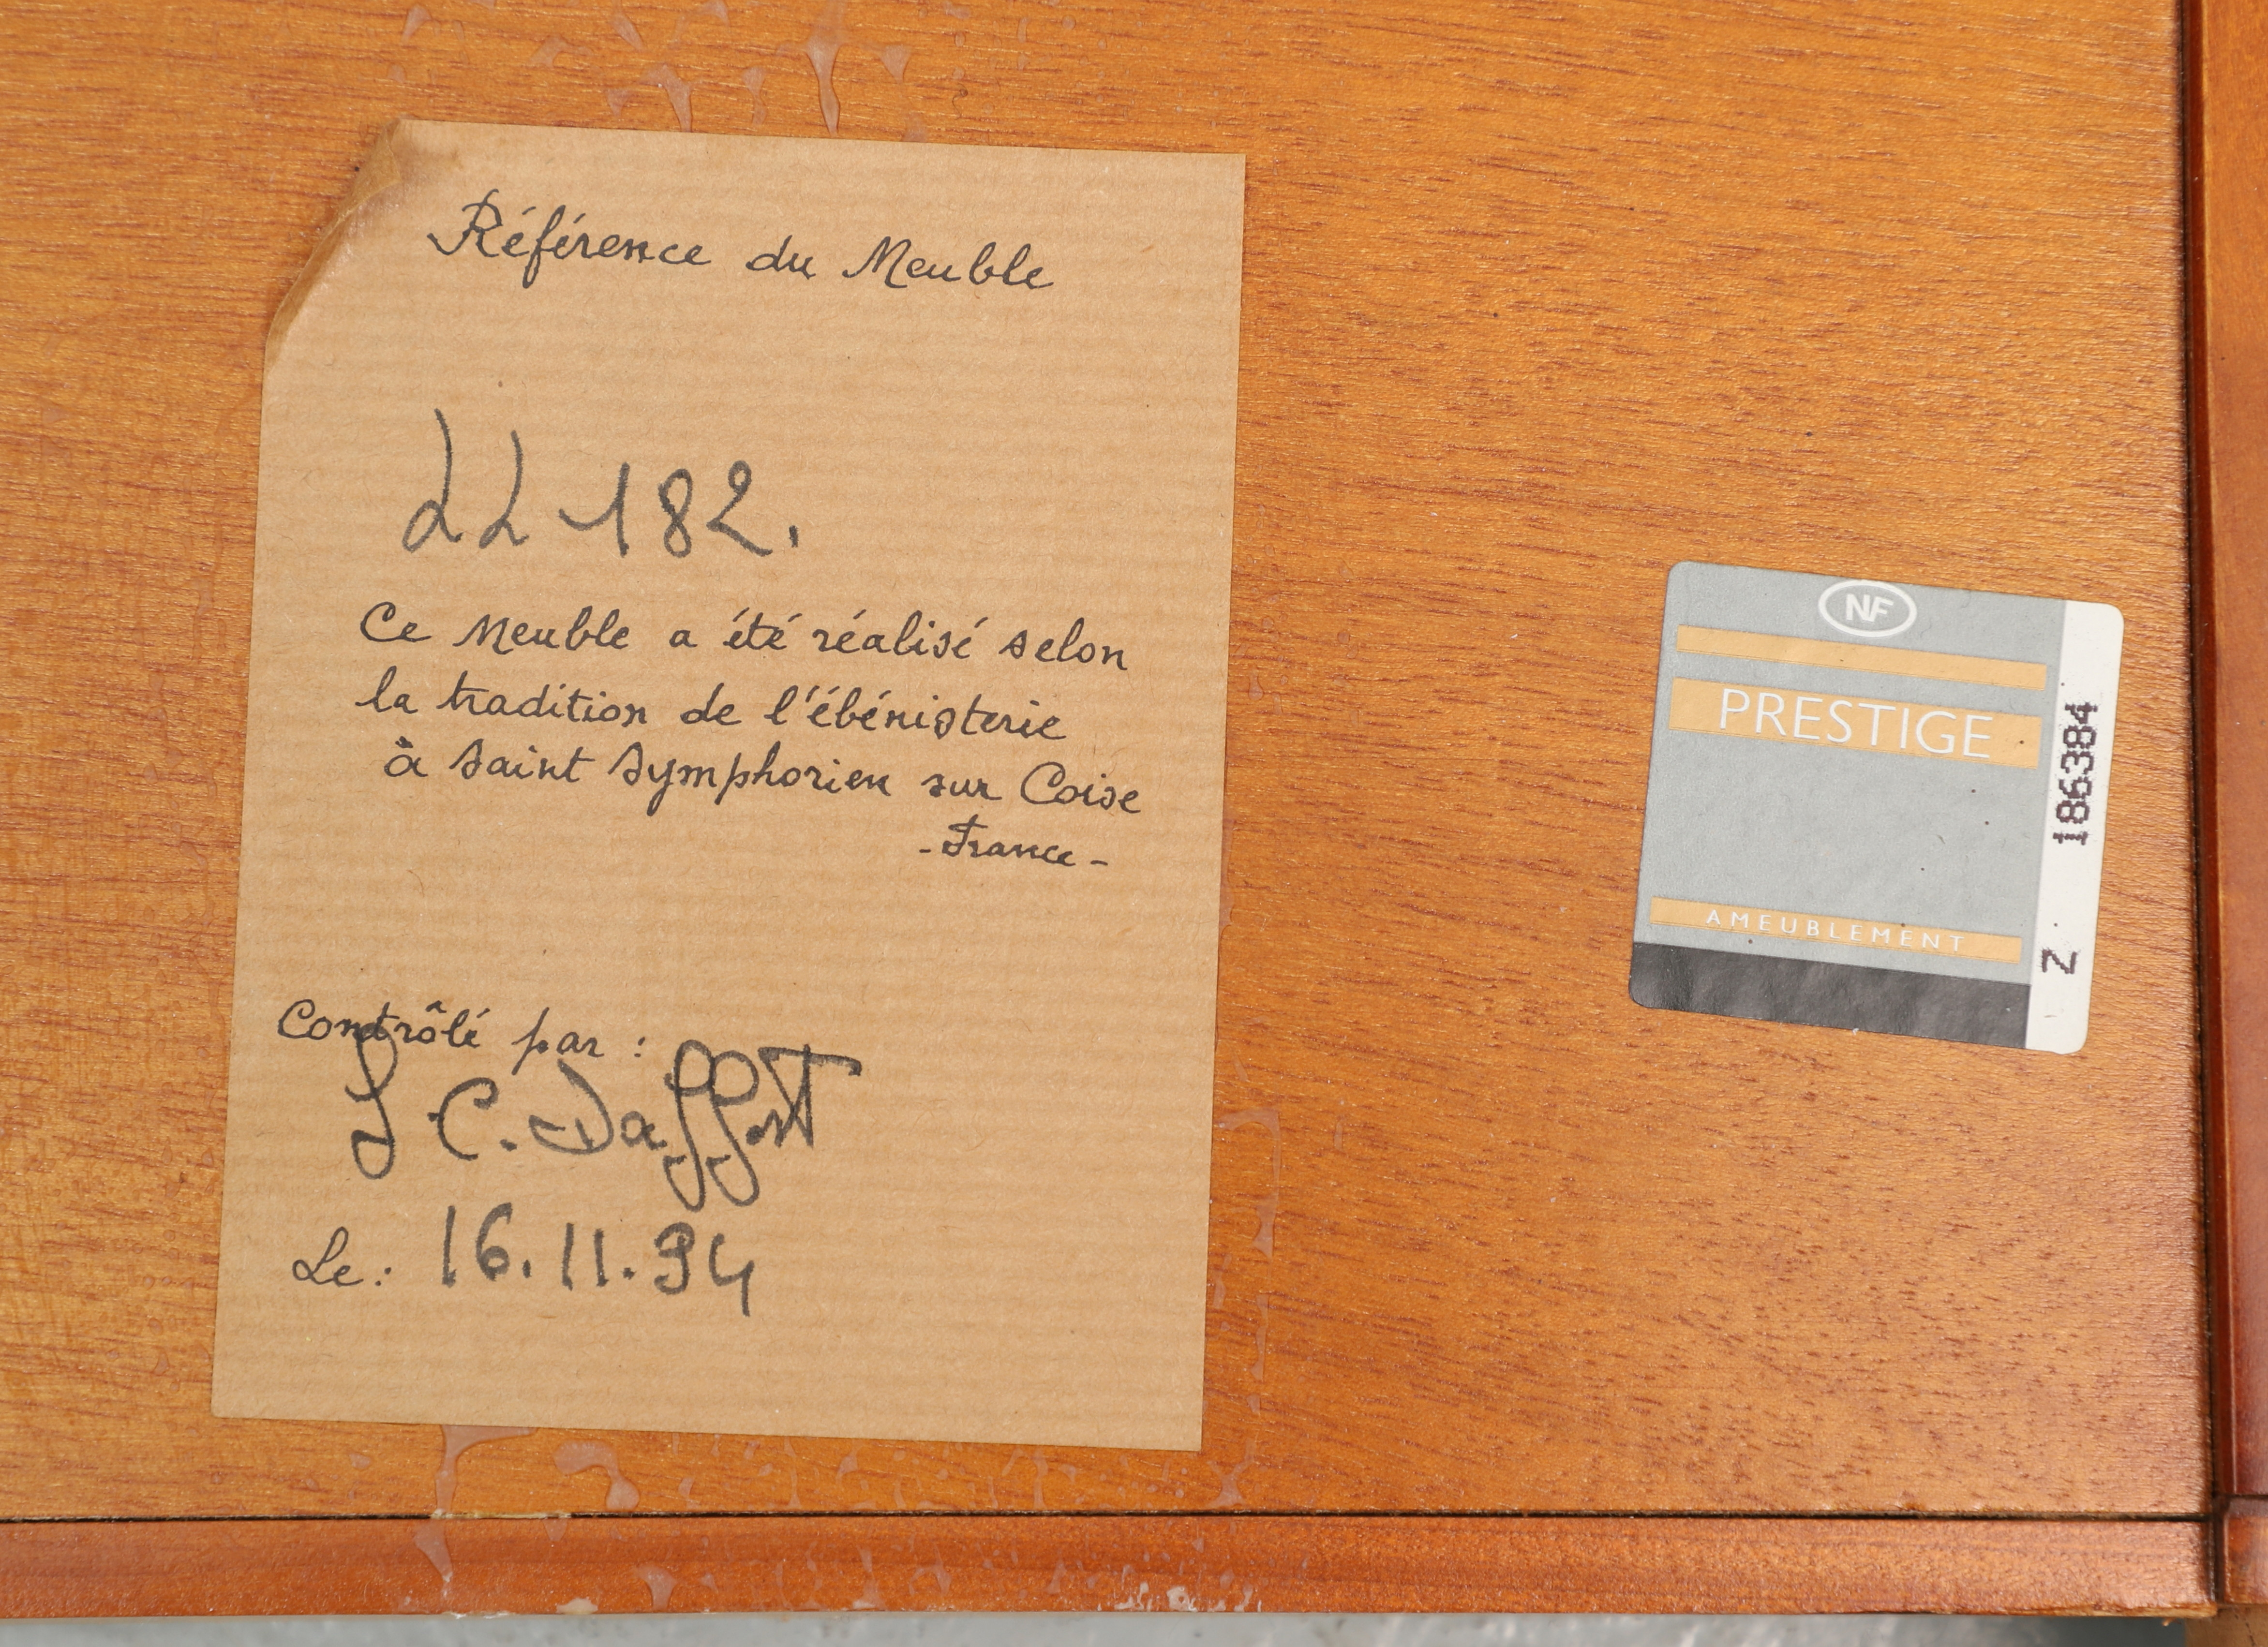 Référence du Meuble
22 182.
Ce Meuble a été réalisé selon
la tradition de l'ébénisterie
à Saint Symphorien sur Coise
- France -
Contrôlé par :
C. Daffont
Le : 16.11.94
NF
PRESTIGE
AMEUBLEMENT
Z 186384